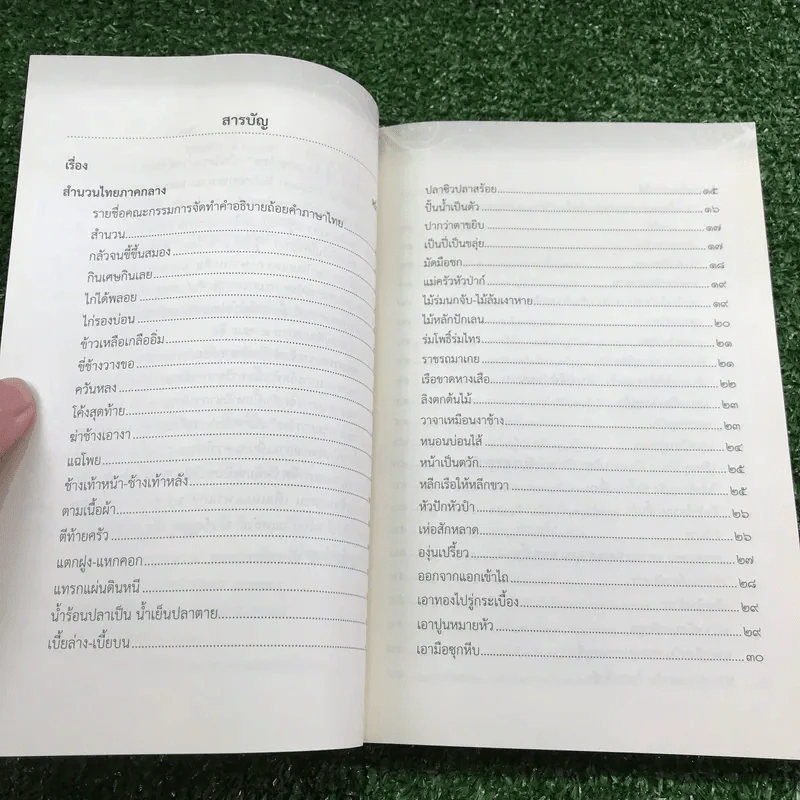 สารบัญ
เรื่อง
สำนวนไทยภาคกลาง
รายชื่อคณะกรรมการจัดทำคำอธิบายถ้อยคำภาษาไทย
สำนวน
กลัวจนขี้ขึ้นสมอง
กินเศษกินเลย
ไก่ได้พลอย
ไก่รองบ่อน
ข้าวเหลือเกลืออิ่ม
ขี่ช้างวางขอ
ควันหลง
โค้งสุดท้าย
ฆ่าช้างเอางา
แฉโพย
ช้างเท้าหน้า-ช้างเท้าหลัง
ตามเนื้อผ้า
ตีท้ายครัว
แตกฝูง-แหกคอก
แทรกแผ่นดินหนี
น้ำร้อนปลาเป็น น้ำเย็นปลาตาย
เบี้ยล่าง-เบี้ยบน
ปลาซิวปลาสร้อย ๑๕
ปั้นน้ำเป็นตัว ๑๖
ปากว่าตาขยิบ ๑๗
เป็นปี่เป็นขลุ่ย ๑๗
มัดมือชก ๑๘
แม่ครัวหัวป่าก์ ๑๙
ไม้ร่มนกจับ-ไม้ล้มเงาหาย ๑๙
ไม้หลักปักเลน ๒๐
ร่มโพธิ์ร่มไทร ๒๑
ราชรถมาเกย ๒๑
เรือขาดหางเสือ ๒๒
ลิงตกต้นไม้ ๒๓
วาจาเหมือนงาช้าง ๒๓
หนอนบ่อนไส้ ๒๔
หน้าเป็นตวัก ๒๕
หลีกเรือให้หลีกขวา ๒๕
หัวปักหัวปำ ๒๖
เห่อสักหลาด ๒๖
องุ่นเปรี้ยว ๒๗
ออกจากแอกเข้าไถ ๒๘
เอาทองไปรู่กระเบื้อง ๒๙
เอาปูนหมายหัว ๒๙
เอามือซุกหีบ ๓๐